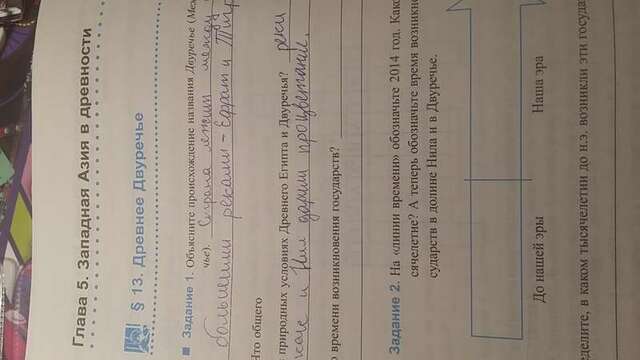 Глава 5. Западная Азия в древности
§ 13. Древнее Двуречье
Задание 1. Объясните происхождение названия Двуречье (Ме
чье). Страна лежит между
большими реками – Ефрат и Тигр
Что общего
природных условиях Древнего Египта и Двуречья? реки
и Нил дарили процветание.
о времени возникновения государств?
Задание 2. На «линии времени» обозначьте 2014 год. Како
сячелетие? А теперь обозначьте время возникно
сударств в долине Нила и в Двуречье.
До нашей эры Наша эра
еделите, в каком тысячелетии до н.э. возникли эти госуда